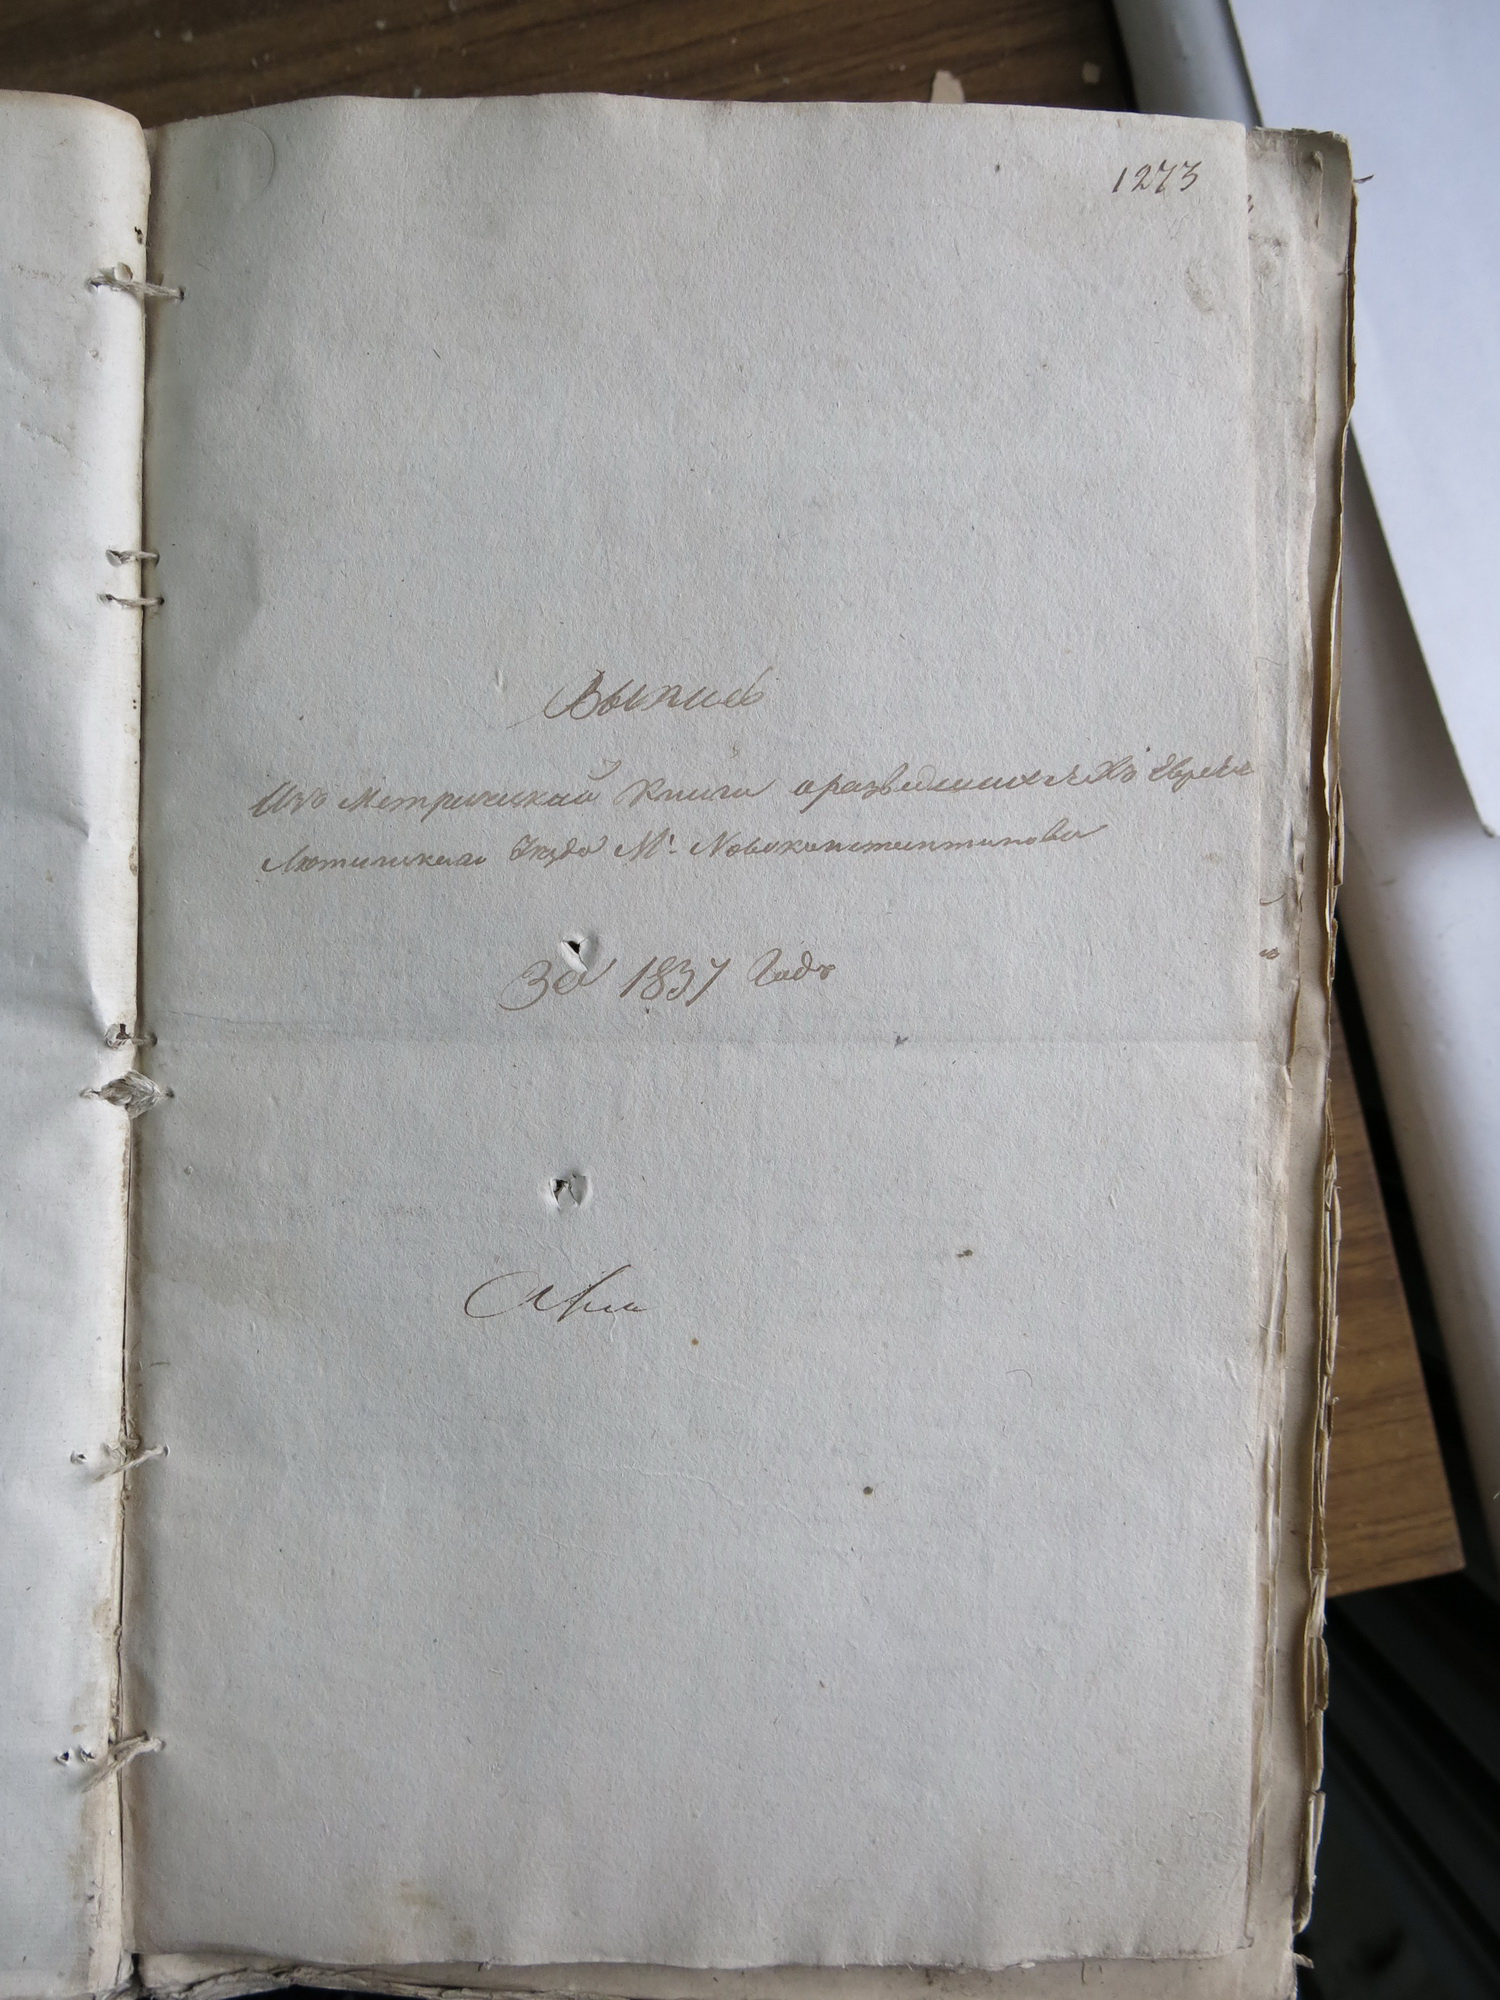 1273
Выпись
Изъ Метрической Книги о разведшихся Хъ Евреев
Летичевскаго Уезда М: Новоконстантинова
За 1837 Годъ